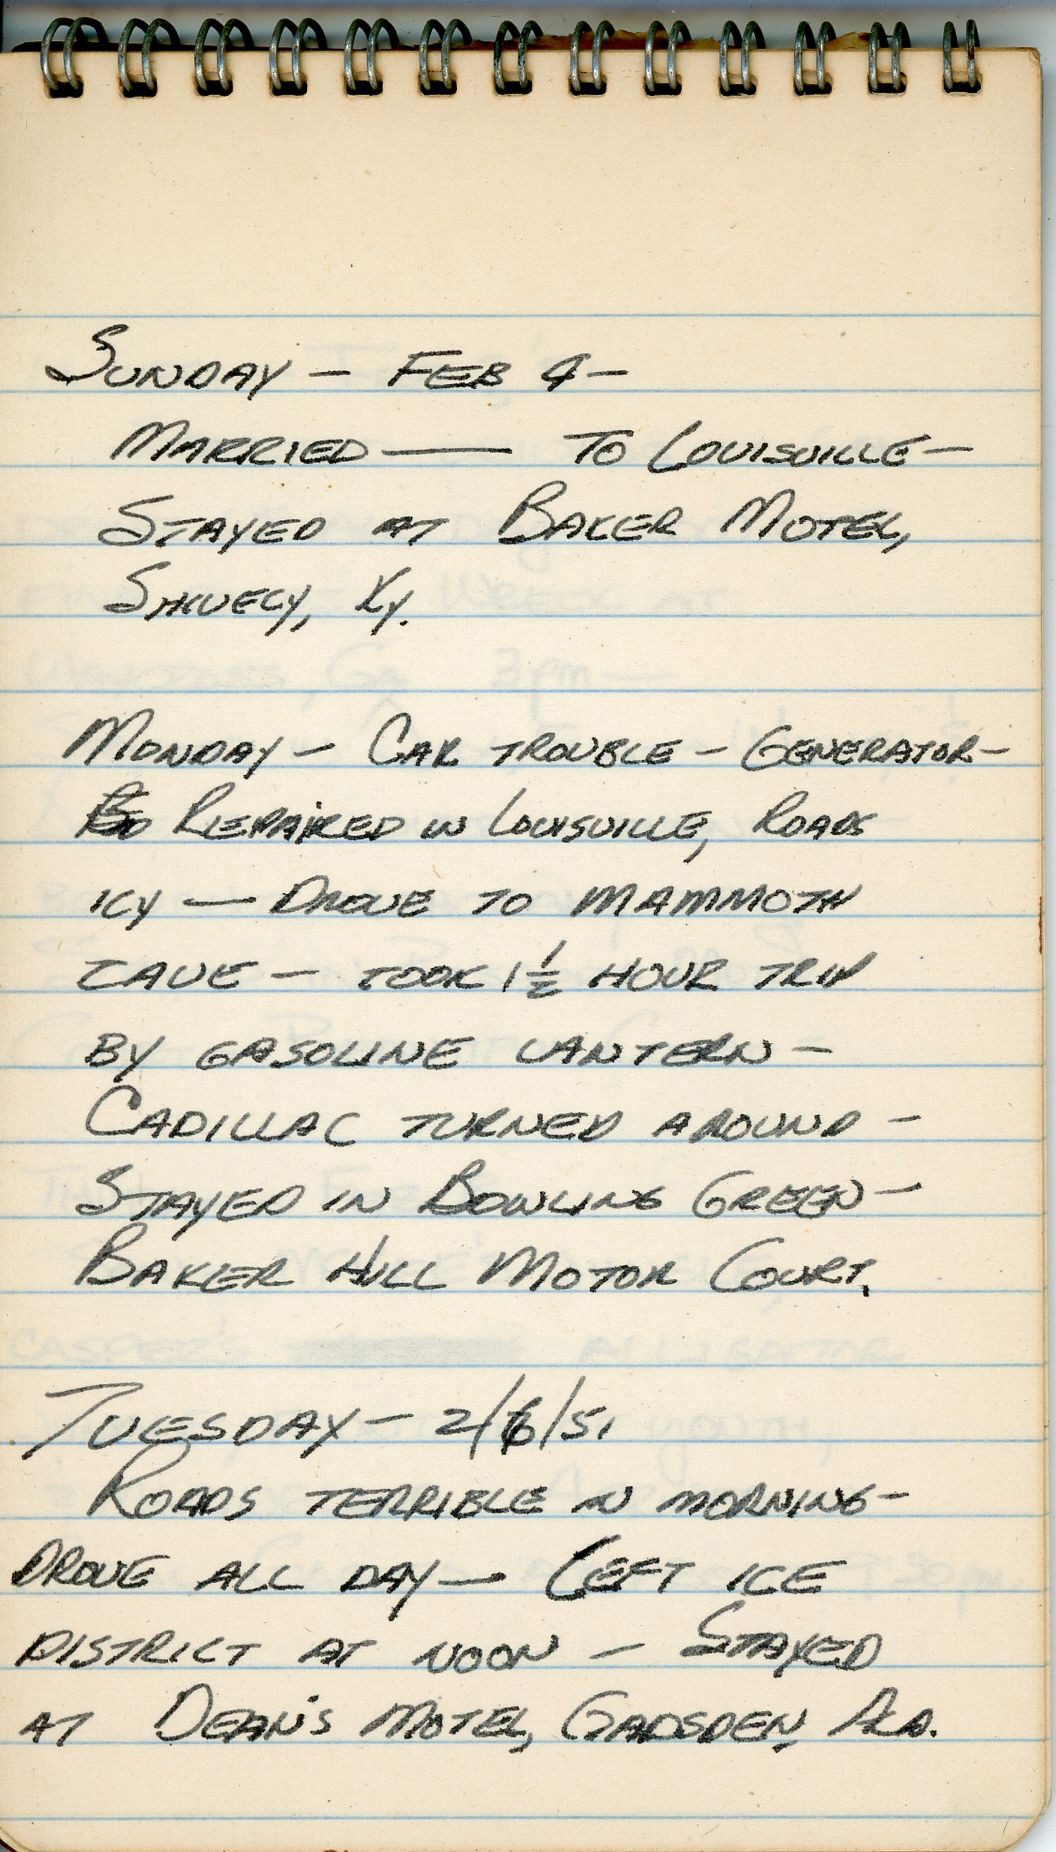 Sunday — Feb 4 —
Married —— to Louisville —
Stayed at Baker Motel,
Shively, Ky.
Monday — Car trouble — Generator —
Repaired in Louisville, Roads
icy — Drove to Mammoth
Cave — took 1 1/2 hour trip
by gasoline lantern —
Cadillac turned around —
Stayed in Bowling Green —
Baker Hill Motor Court.
Tuesday — 2/6/51
Roads terrible in morning —
Drove all day — Left ice
district at noon — Stayed
at Dean's Motel, Gadsden, Ala.